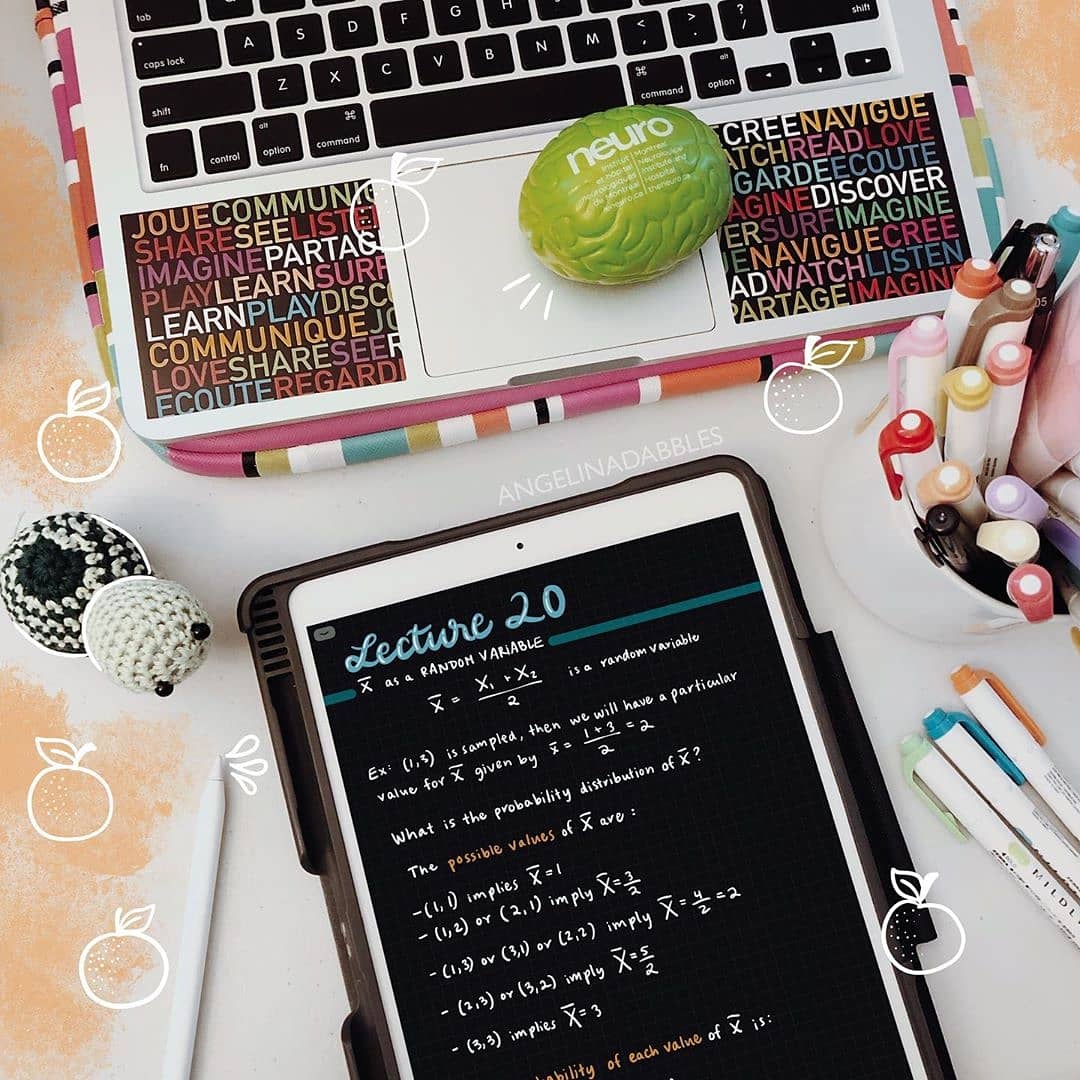 tab
A S D F G H J K L
caps lock
Z X C V B N M < , > . ? /
shift
shift
fn control alt option ⌘ command
⌘ command alt option
neuro
Institut et hôpital neurologiques de Montréal
Montreal Neurological Institute and Hospital
theneuro.ca
JOUECOMMUNIQ
SHARESEELISTE
IMAGINEPARTAG
PLAYLEARNSURF
LEARNPLAYDISCO
COMMUNIQUEJO
LOVESHARESEER
ECOUTEREGARDE
CREENAVIGUE
ATCHREADLOVE
GARDEECOUTE
AGINEDISCOVER
ERSURFIMAGINE
UENAVIGUECREE
ADWATCHLISTEN
PARTAGEIMAGIN
05
ANGELINADABBLES
Lecture 20
X̄ as a RANDOM VARIABLE
X̄ = (X₁ + X₂)/2 is a random variable
Ex: (1,3) is sampled, then we will have a particular
value for X̄ given by x̄ = (1+3)/2 = 2
What is the probability distribution of X̄?
The possible values of X̄ are:
-(1,1) implies X̄=1
- (1,2) or (2,1) imply X̄=3/2
- (1,3) or (3,1) or (2,2) imply X̄=4/2=2
- (2,3) or (3,2) imply X̄=5/2
- (3,3) implies X̄=3
bability of each value of X̄ is:
MILDL